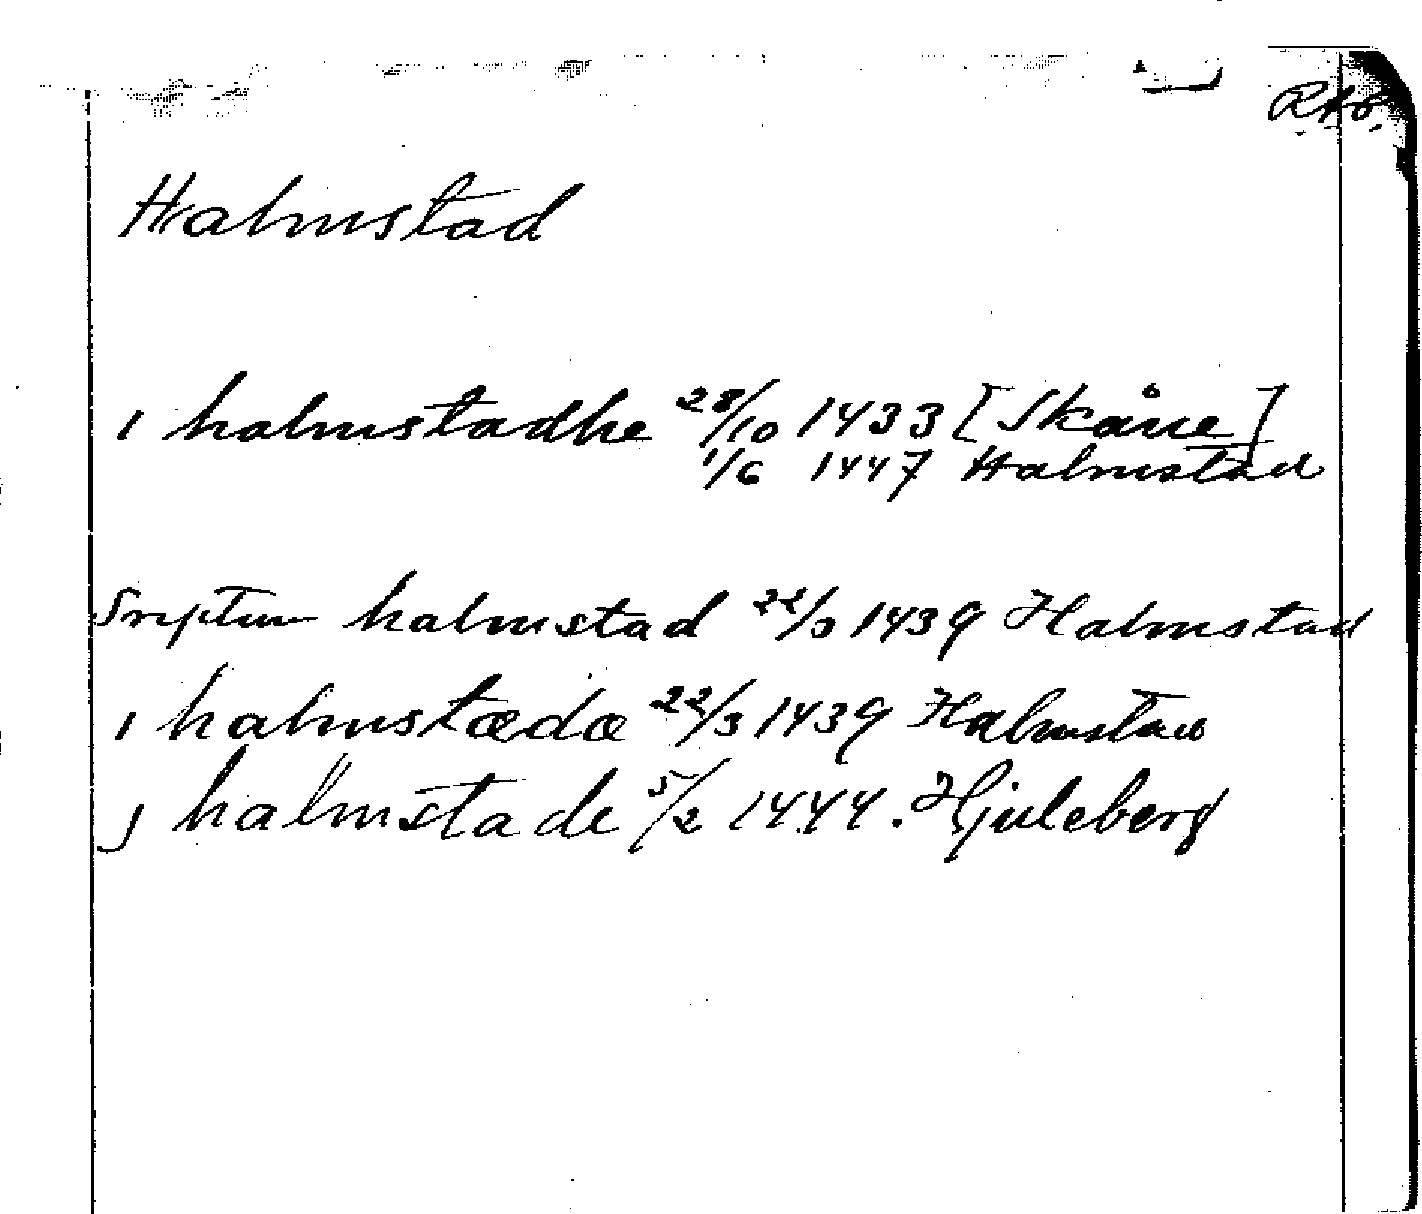 RAP.
Halmstad
i halmstadhe 28/10 1433 [Skåne]
1/6 1447 Halmstad
Sriptum halmstad 22/3 1439 Halmstad
i halmstædæ 22/3 1439 Halmstad
j halmstade 5/2 1444. Hjuleberg